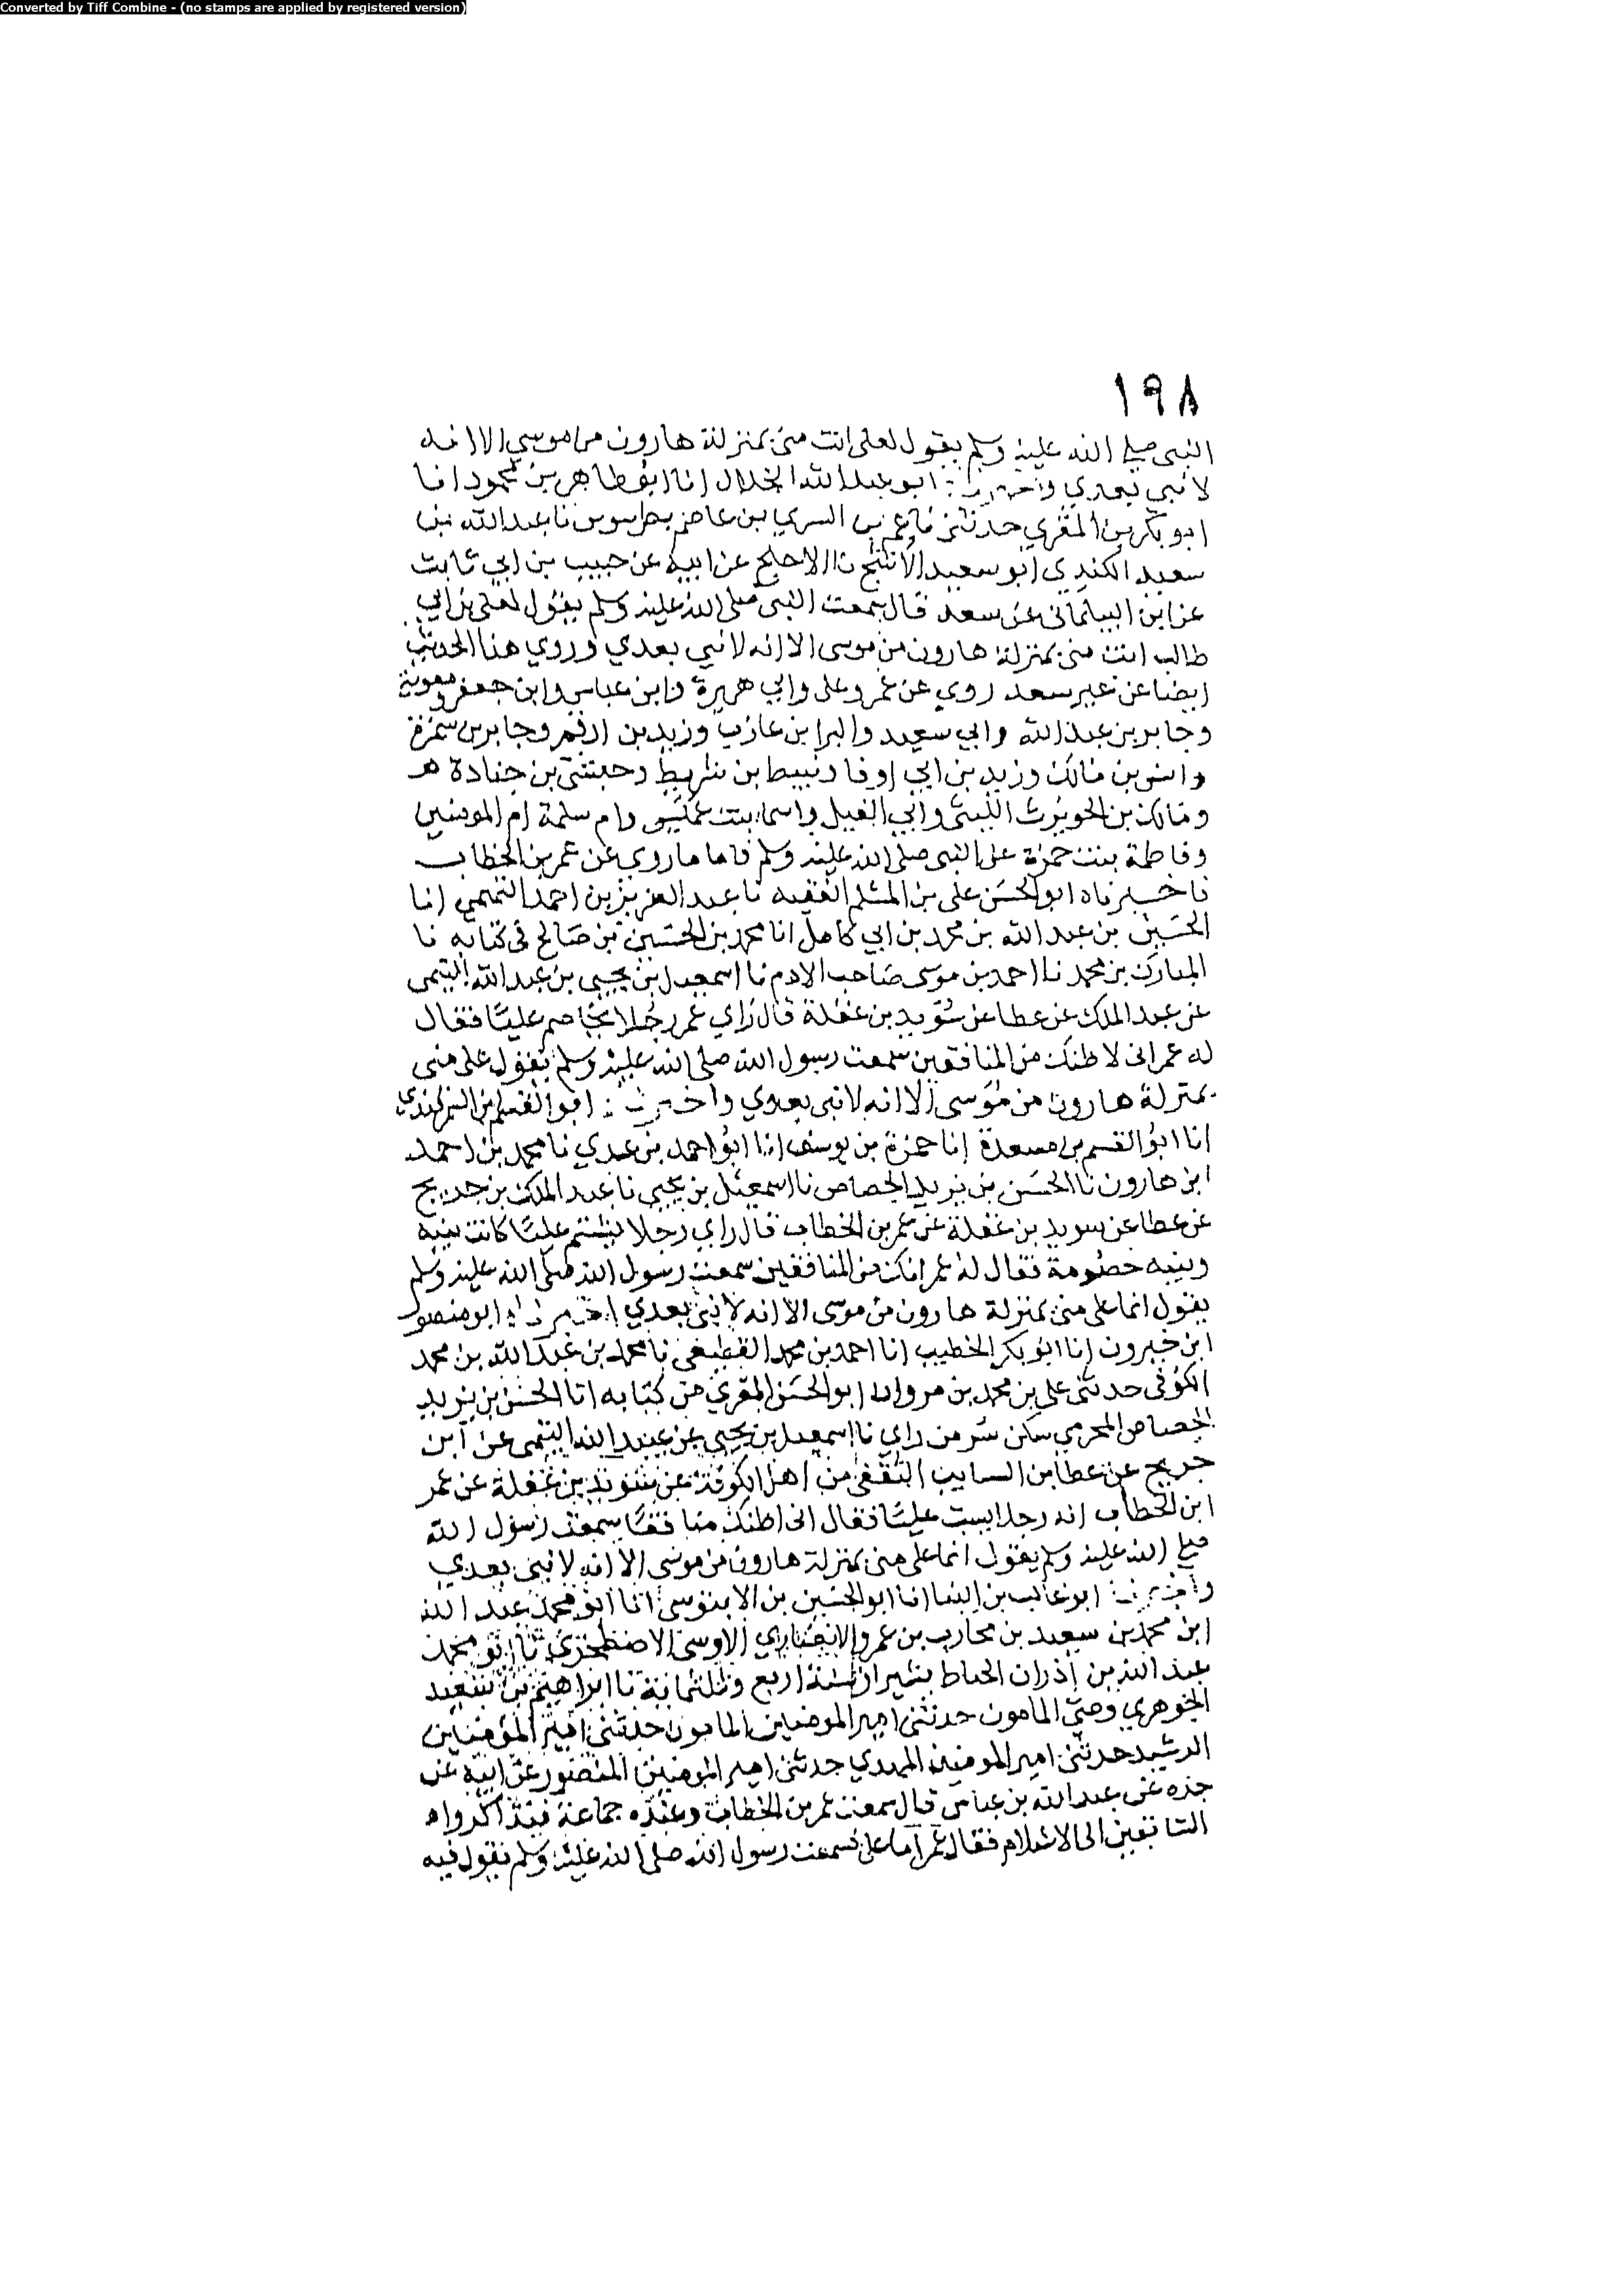 Converted by Tiff Combine - (no stamps are applied by registered version)
١٩٨
النبى صلى الله عليه وسلم يقول لعلى انت منى بمنزلة هارون من موسي الا انه
لا نبي بعدي واخبرنا ابو عبد الله الخلال انا ابو طاهر بن محمود انا
ابو بكر بن المقري حدثنى السري بن عاصم بطرسوس نا عبد الله بن
سعيد الكندي ابو سعيد الاشج نا الاجلح عن ابيه عن حبيب بن ابي ثابت
عن ابن البيلمانى عن سعد قال سمعت النبى صلى الله عليه وسلم يقول لعلى بن ابي
طالب انت منى بمنزلة هارون من موسى الا انه لا نبي بعدي وروي هذا الحديث
ايضا عن غير سعد روي عن عمر وعلى وابي هريرة وابن عباس وابن جعفر ومعوية
وجابر بن عبد الله وابي سعيد والبرا بن عازب وزيد بن ارقم وجابر بن سمرة
وانس بن مالك وزيد بن ابي اوفا ونبيط بن شريط وحبشى بن جنادة
ومالك بن الحويرث الليثى وابي الفيل واسما بنت عميس وام سلمة ام المومنين
وفاطمة بنت حمزة على النبى صلى الله عليه وسلم فاما ما روي عن عمر بن الخطاب
فاخبرناه ابو الحسن على بن المسلم الفقيه نا عبد العزيز بن احمد التميمي انا
الحسين بن عبد الله بن محمد بن ابي كامل انا محمد بن الحسين بن صالح فى كتابه نا
المبارك بن محمد نا احمد بن موسى صاحب الادم نا اسمعيل بن يحيى بن عبد الله التيمى
عن عبد الملك عن عطا عن سويد بن غفلة قال راي عمر رجلا يخاصم عليا فقال
له عمر انى لاظنك من المنافقين سمعت رسول الله صلى الله عليه وسلم يقول على منى
بمنزلة هارون من موسى الا انه لا نبى بعدي واخبرنا ابو القسم بن السمرقندي
انا ابو القسم بن مسعدة انا حمزة بن يوسف انا ابو احمد بن عدي نا محمد بن احمد
ابن هارون نا الحسن بن يزيد الجصاص نا اسمعيل بن يحيى نا عبد الملك بن جريج
عن عطا عن سويد بن غفلة عن عمر بن الخطاب قال راي رجلا يشتم عليا كانت بينه
وبينه خصومة فقال له عمر انك من المنافقين سمعت رسول الله صلى الله عليه وسلم
يقول انما على منى بمنزلة هارون من موسى الا انه لا نبى بعدي اخبرنا ابو منصور
ابن خيرون انا ابو بكر الخطيب انا احمد بن محمد القطيعى نا محمد بن عبد الله بن محمد
الكوفى حدثنى على بن محمد بن مروان ابو الحسن المقري من كتابه انا الحسن بن يزيد
الجصاص المخرمي سكن سر من راي نا اسمعيل بن يحيى عن عبيد الله التيمى عن ابن
جريج عن عطا بن السايب الثقفى من اهل الكوفة عن سويد بن غفلة عن عمر
ابن الخطاب انه رجلا يسب عليا فقال انى اظنك منافقا سمعت رسول الله
صلى الله عليه وسلم يقول انما على منى بمنزلة هارون من موسى الا انه لا نبى بعدي
واخبرنا ابو غالب بن البنا انا ابو الحسين بن الابنوسى انا ابو محمد عبد الله
ابن محمد بن سعيد بن محارب بن عمرو الانصاري الاوسى الاصطخري نا ابو محمد
عبد الله بن اذران الخياط بشيراز سنة اربع وثلثماية نا ابراهيم بن سعيد
الجوهري وصي المامون حدثنى امير المومنين المامون حدثنى امير المؤمنين
الرشيد حدثنى امير المومنين المهدي حدثنى امير المومنين المنصور عن ابيه عن
جده عن عبد الله بن عباس قال سمعت عمر بن الخطاب وعنده جماعة فتذاكروا
السابقين الى الاسلام فقال عمر اما على فسمعت رسول الله صلى الله عليه وسلم يقول فيه